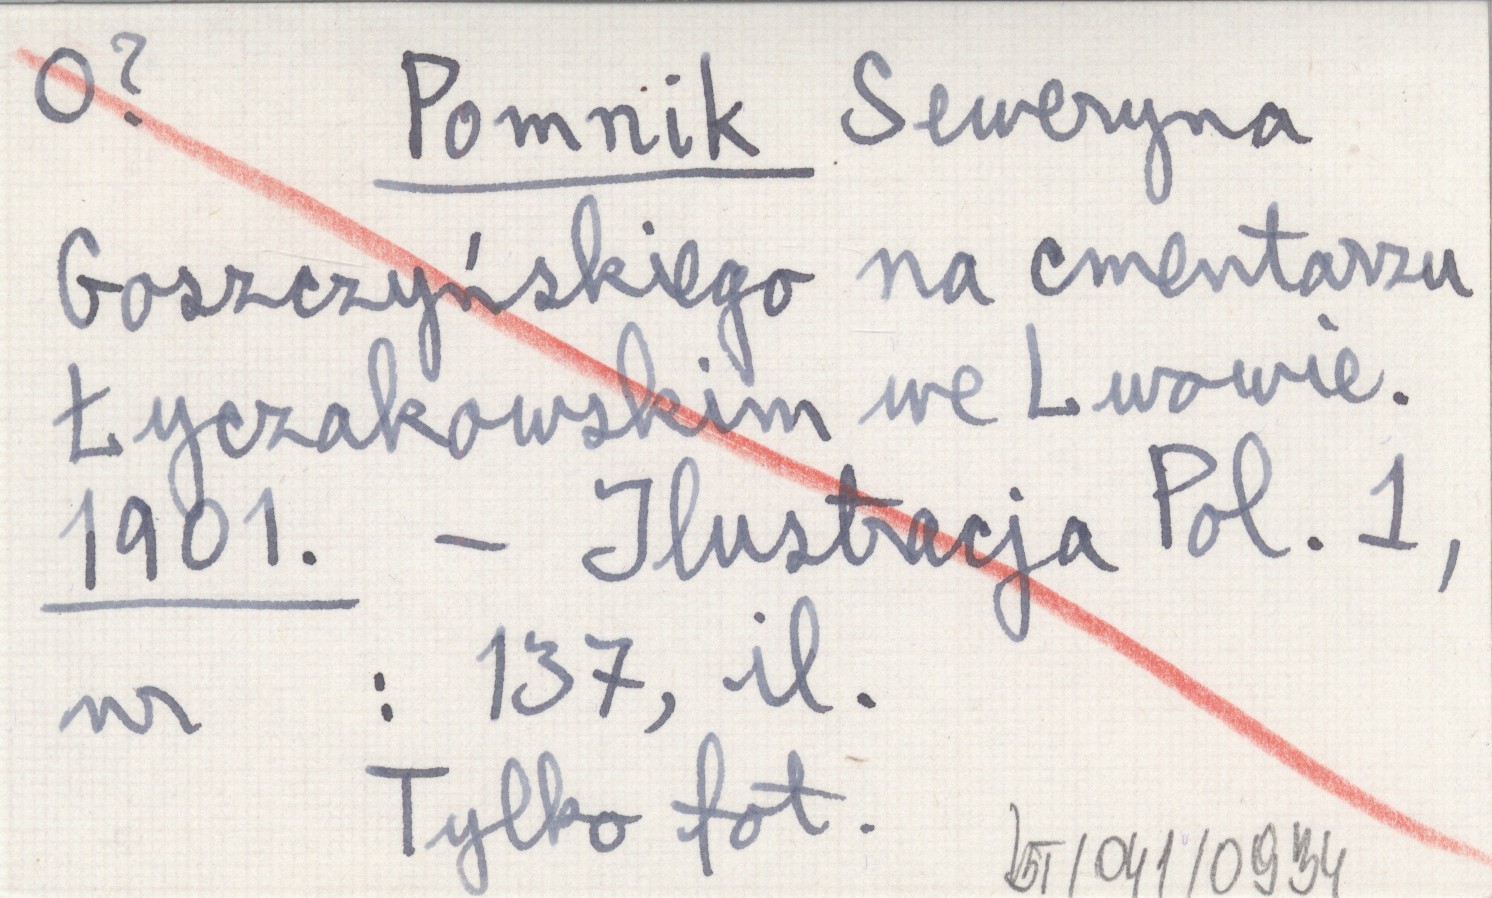 O? Pomnik Seweryna
Goszczyńskiego na cmentarzu
Łyczakowskim we Lwowie.
1901. – Ilustracja Pol. 1,
nr : 137, il.
Tylko fot.
/041/0934